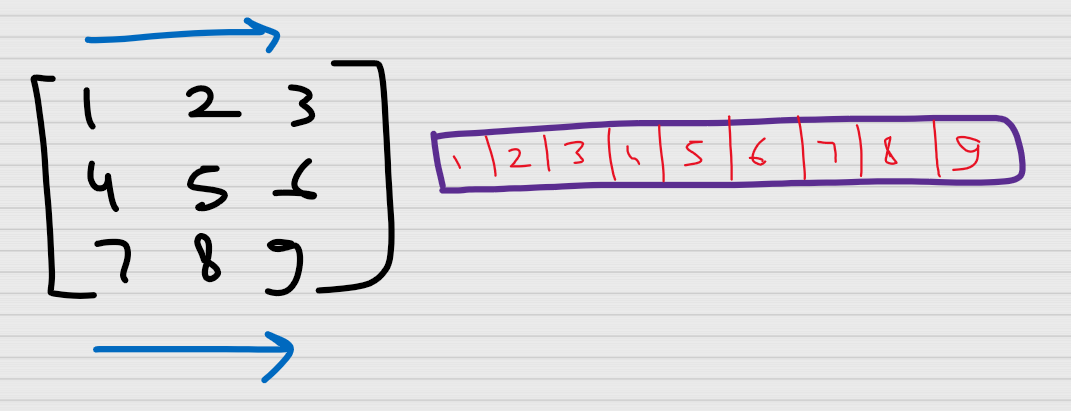 1 2 3
4 5 6
7 8 9
1 2 3 4 5 6 7 8 9